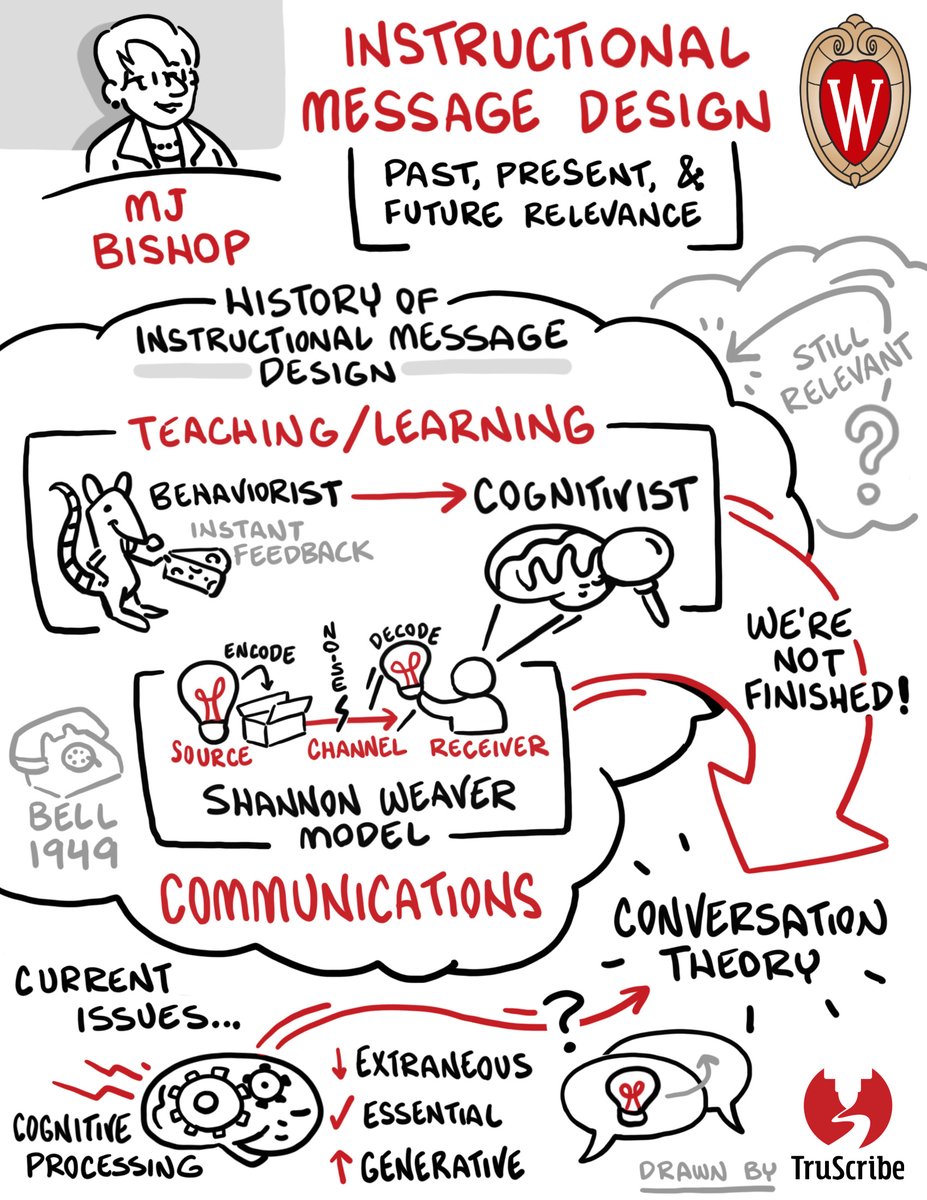 INSTRUCTIONAL
MESSAGE DESIGN
PAST, PRESENT, &
FUTURE RELEVANCE
W
MJ
BISHOP
HISTORY OF
INSTRUCTIONAL MESSAGE
DESIGN
STILL
RELEVANT
?
TEACHING/LEARNING
BEHAVIORIST
COGNITIVIST
INSTANT
FEEDBACK
WE'RE
NOT
FINISHED!
ENCODE
NOISE
DECODE
SOURCE
CHANNEL
RECEIVER
SHANNON WEAVER
MODEL
BELL
1949
COMMUNICATIONS
CONVERSATION
THEORY
CURRENT
ISSUES...
?
COGNITIVE
PROCESSING
↓ EXTRANEOUS
✓ ESSENTIAL
↑ GENERATIVE
DRAWN BY TruScribe